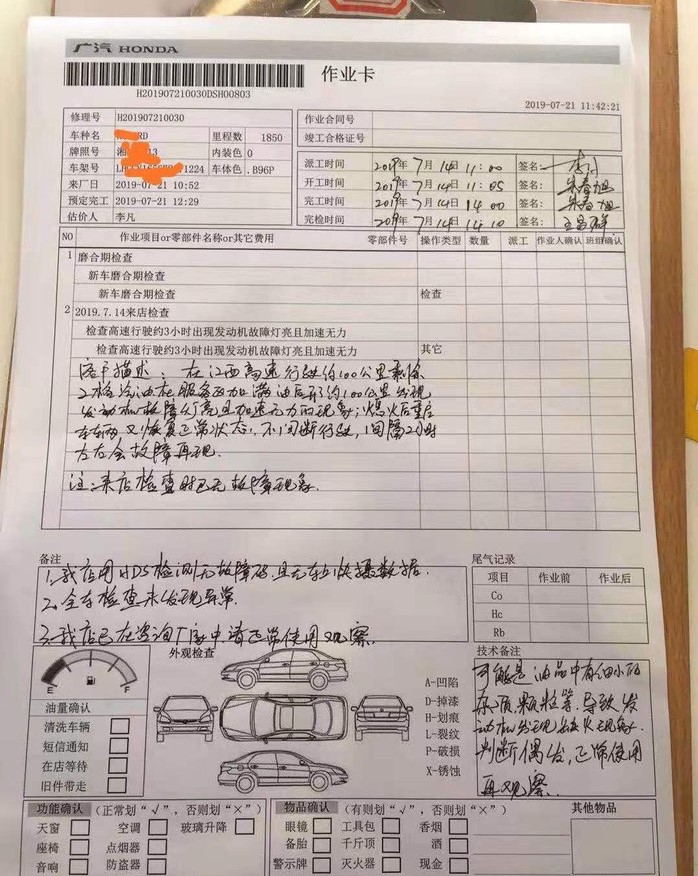 广汽 HONDA
H201907210030DSH00803
作业卡
2019-07-21 11:42:21
修理号 H201907210030
作业合同号
竣工合格证号
车种名 RD 里程数 1850
牌照号 湘 13 内装色 0
车架号 1224 车体色 .B96P
来厂日 2019-07-21 10:52
预定完工 2019-07-21 12:29
估价人 李凡
派工时间 2019年7月14日 11:00 签名:
开工时间 2019年7月14日 11:05 签名:
完工时间 2019年7月14日 14:00 签名:
完检时间 2019年7月14日 14:10 签名:
NO 作业项目or零部件名称or其它费用 零部件号 操作类型 数量 派工 作业人确认 班组确认
1 磨合期检查
新车磨合期检查
新车磨合期检查 检查
2 2019.7.14来店检查
检查高速行驶约3小时出现发动机故障灯亮且加速无力
检查高速行驶约3小时出现发动机故障灯亮且加速无力 其它
客户描述:在江西高速行驶约100公里剩余
2格汽油在服务区加满油后行约100公里出现
发动机故障灯亮且加速无力的现象;熄火后重启
车辆又恢复正常状态,不间断行驶,间隔2小时
左右会故障再现.
注:来店检查时已无故障现象.
备注
1.我店用HDS检测无故障码,且无车上快摄数据.
2.全车检查未发现异常.
3.我店已在咨询厂家中,请正常使用观察.
尾气记录
项目 作业前 作业后
Co
Hc
Rb
外观检查
E F
油量确认
清洗车辆
短信通知
在店等待
旧件带走
A-凹陷
D-掉漆
H-划痕
L-裂纹
P-破损
X-锈蚀
技术备注
可能是油品中有细小的
杂质颗粒等,导致发
动机出现缺火现象.
判断偶发,正常使用
再观察.
功能确认 (正常划“√”,否则划“×”)
天窗 空调 玻璃升降
座椅 点烟器
音响 防盗器
物品确认 (有则划“√”,否则划“×”)
眼镜 工具包 香烟
备胎 千斤顶 酒
警示牌 灭火器 现金
其他物品